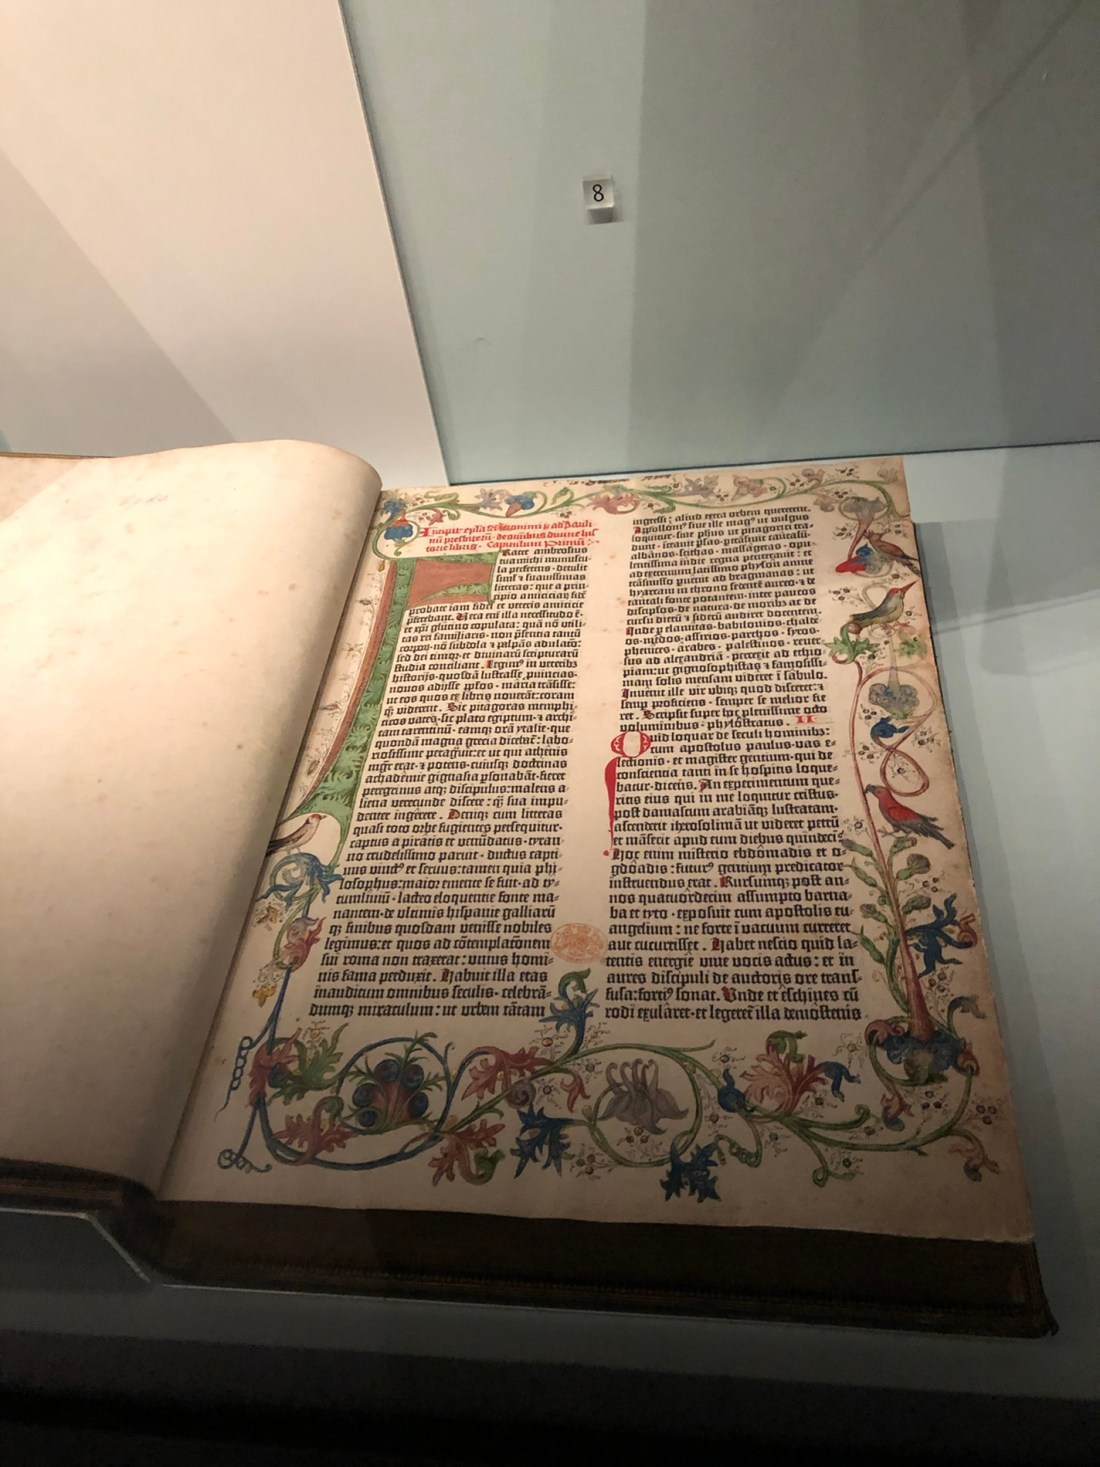 8
Incipit epl̄a sc̄i Ieronimi ꝓ ad Pauli
nū presbiterū· de om̄ibus diuine his
torie libris· Capitulum Primū:
Frater ambrosius
tua michi munuscu
la preferens· detulit
siml̄ ⁊ suauissimas
litteras: que a prin
cipio amiciciaꝝ fidē
probate iam fidei ⁊ veteris amicicie
ꝓferebant· Uera eni illa necessitudo ē·
et xp̄i glutino copulata: quā nō vtili
tas rei familiaris· non p̄sentia tantū
corpoꝝ· nō subdola ⁊ palpās adulaco:
sed dei timor· et diuinarū scripturarū
studia conciliant· Legim⁹ in veteribꝫ
historijs· quosdā lustrasse ꝓuincias·
nouos adijsse ppl̄os· maria trāsisse:
ut eos quos ex libris nouerāt: coram
qꝫ viderent· Sic pitagoras memphi
ticos vates· sic plato egiptum· ⁊ archi
tam tarentinū· eamqꝫ orā ytalie· que
quondā magna grecia diceb̄t: labo
riosissime peragrauit: ut qui athenis
mgr̄ erat· ⁊ potens· cuiusqꝫ doctrinas
achademie gignasia ꝑsonabāt· fieret
peregrinus atqꝫ discipulus: malens a
liena verecunde discere: qꝫ sua impu
denter ingerere· Deniqꝫ cum litteras
quasi toto orbe fugientes persequitur·
captus a piratis et venūdatus· tyran
no crudelissimo paruit· ductus capti
uus vinct⁹ et seruus: tamen quia phi
losophus: maior emente se fuit· ad ty
tumliuiū· lacteo eloquentie fonte ma
nantem· de vltimis hispanie galliarū
qꝫ finibus quosdam venisse nobiles
legimus: et quos ad cōtemplatōnem
sui roma non traxerat: vnius homi
nis fama perduxit· Habuit illa etas
inauditum omnibus seculis· celebrā
dumqꝫ miraculum: ut vrbem tātam
ingressi: aliud extra vrbem quererent·
Apolloni⁹ siue ille mag⁹ ut vulgus
loquitur· siue ph̄us ut pitagorici tra
dunt· intrauit ꝑsas· ꝑtransiuit caucasū
albanos· scithas· massagetas· opu
lentissima indie regna penetrauit: et
ad extremum latissimo physon amne
trāsmisso ꝑuenit ad bragmanas: ut
hyarcam in throno sedentē aureo· ⁊ de
tantali fonte potantem· inter paucos
discipl̄os· de natura· de moribꝫ ac de
cursu dierū ⁊ siderū audiret docentem·
Inde ꝑ elamitas· babilonios· chalde
os· medos· assirios· parthos· syros·
phenices· arabes· palestinos· reuer
sus ad alexandriā· perrexit ad ethio
piam: ut gignosophistas ⁊ famosissi
mam solis mensam videret ī sabulo·
Inuenit ille vir vbiqꝫ quod disceret: ⁊
semꝑ proficiens· semper se melior fie
ret· Scripsit super hoc plenissime octo
voluminibus· phylostratus· II
Quid loquar de seculi hominibꝫ:
cum apostolus paulus· vas e
lectionis· et magister gentium· qui de
conscientia tanti in se hospitis loque
batur· dicens· An experimentum que
ritis eius qui in me loquitur cristus·
post damascum arabiāqꝫ lustratam·
ascenderit iherosolimā ut videret petrū
et māserit apud eum diebus quindeci·
Hoc enim misterio ebdōmadis et o
gdōadis: futur⁹ gentium predicator
instruendus erat· Rursumqꝫ post an
nos quatuordecim assumpto barna
ba et tyto· exposuit cum apostolis eu
angelium: ne forte ī vacuum curreret
aut cucurrisset· Habet nescio quid la
tentis energie viue vocis actus: et in
aures discipuli de auctoris ore trans
fusa: forti⁹ sonat· Unde et ēschines cū
rodi exularet· et legeret̄ illa demōstenis